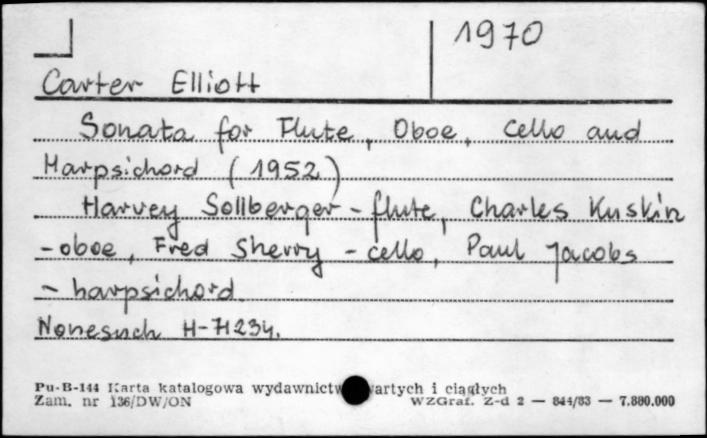 1970
Carter Elliott
Sonata for Flute, Oboe, Cello and
Harpsichord (1952)
Harvey Sollberger - flute, Charles Kuskin
- oboe, Fred Sherry - cello, Paul Jacobs
- harpsichord
Nonesuch H-71234.
Pu-B-144 Karta katalogowa wydawnictw wartych i ciągłych
Zam. nr 136/DW/ON WZGraf. Z-d 2 — 844/83 — 7.880.000